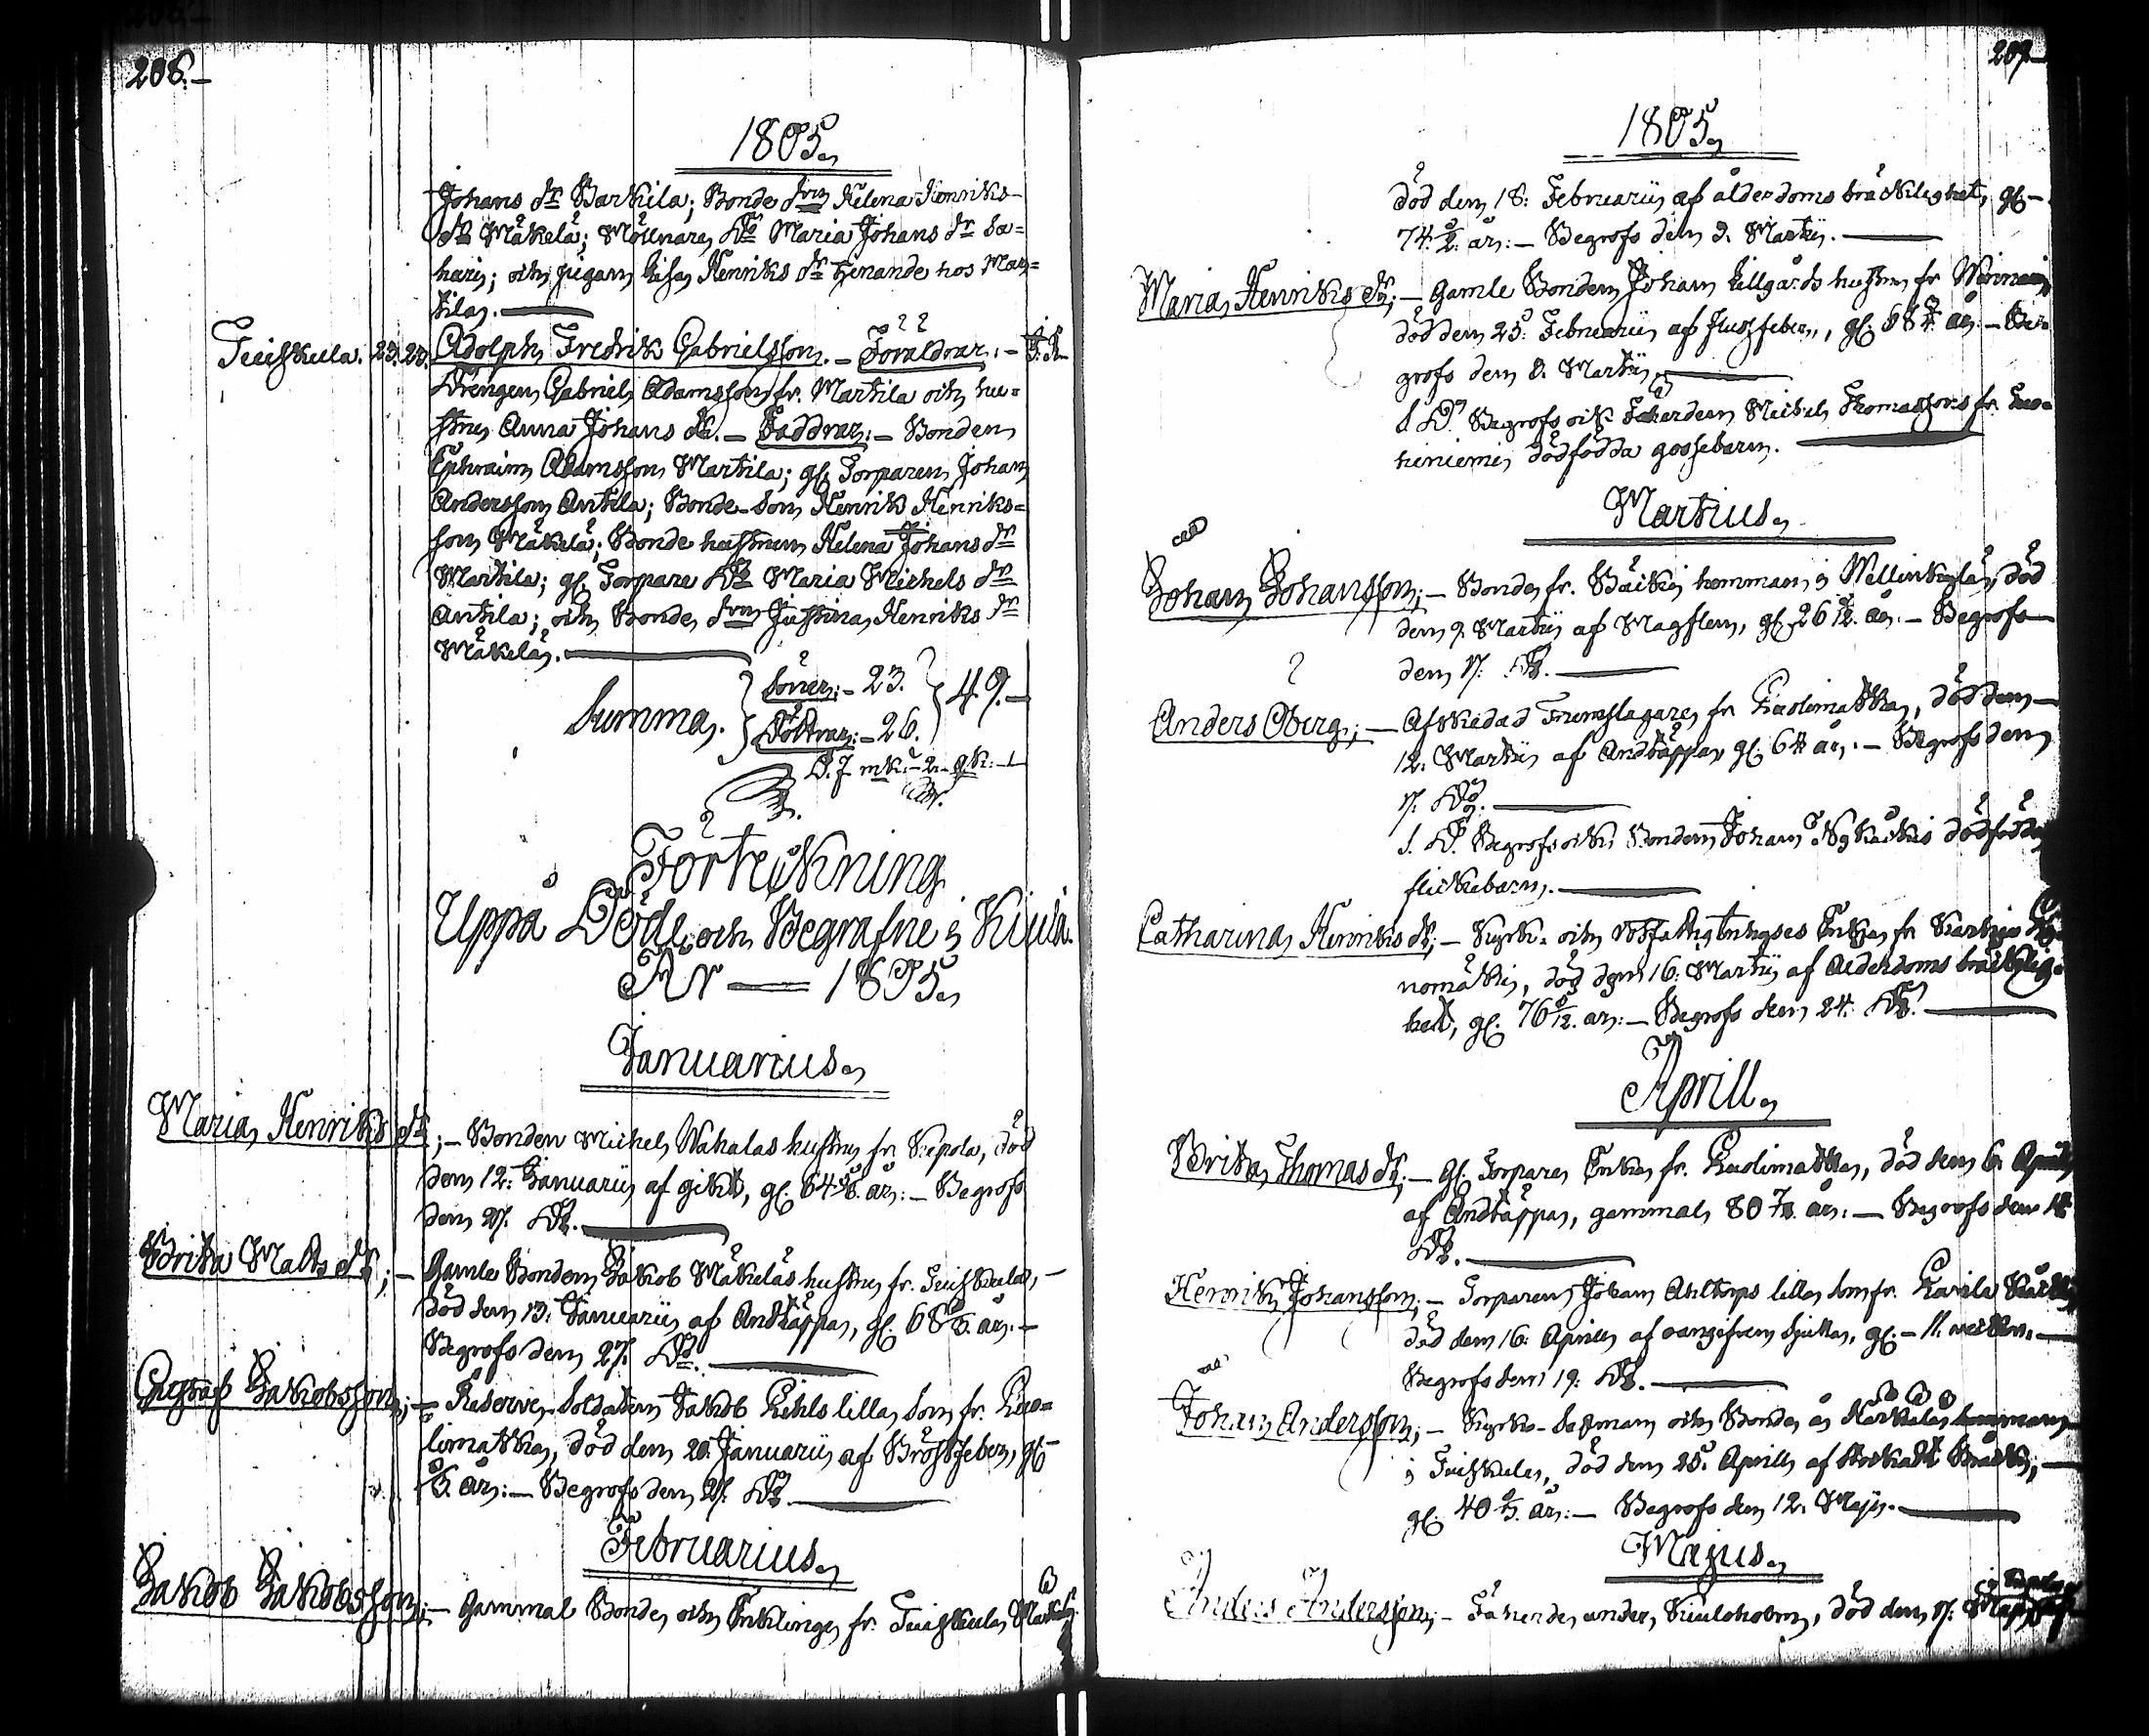 208.
1805.
Johans dr Barkila; Bonde drn Helena Henriks-
dr Mäkelä; Möllnare Do Maria Johans dr Sa=
hari; och pigan Lisa Henriks dr tjenande hos Mar=
tila.
Tuiskula. 23. 23. Adolph Fredrik Gabrielsson. – Föräldrar: –
Drengen Gabriel Adamsson fr. Martila och hu=
strun Anna Johans dr. – Faddrar: – Bonden
Ephraim Adamsson Martila; gl. Torparen Johan
Andersson Antila; Bonde-Son Henrik Henriks=
son Mäkelä; Bonde hustrun Helena Johans dr
Martila; gl. Torpare Do Maria Michels dr
Antila; och Bonde drn Justina Henriks dr
Mäkelä.
Summa. Söner: – 23. Döttrar: – 26. 49. –
D. f. mk. – 2. – qk: – 1
Förtekning
Uppå Döde och Begrafne i Kiula
År — 1805.
Januarius.
Maria Henriks dr; – Bonden Michel Wahalas hustru fr. Kepola, död
dem 12. Januarii af gikt, gl. 64 år: – Begrofs
dem 27. Do.
Brita Matts dr; – Gamle Bonden Jakob Mäkeläs hustru fr. Tuiskula, –
död dem 13. Januarii af Andtäppa, gl. 68 år. –
Begrofs dem 27. Do.
Gustaf Jakobsson; – Reserve-Soldaten Jakob Kihls lilla Son fr. Kuo=
limatka, död dem 20. Januarii af Bröstfeber, gl –
år: – Begrofs dem 27. Do.
Februarius.
Jakob Jakobsson; – Gammal Bonde och Enkling fr. Tuiskula Markula
209.
1805.
död dem 18. Februarii af ålderdoms bräcklighet, gl –
74 år: – Begrofs dem 3. Martii.
Maria Henriks dr; – Gamle Bonden Johan Lillgårds hustru fr.
död dem 25. Februarii af flussfeber, gl. 68 år. – Be=
grofs dem 3. Martii.
S. D. Begrofs ock Fäherden Michel Thomassons fr.
hiniemi dödfödda gossebarn.
Martius.
Johan Johansson; – Bonde fr. Bäcki hemman i Wellinkylä, död
dem 9. Martii af Magflen, gl. 26 år. – Begrofs
dem 17. Do.
Anders Öberg; – Afskedad Trumslagare fr Kuolimatka, död dem –
12. Martii af Andtäppa gl. 64 år. – Begrofs dem
17. Do.
S. D. Begrofs ock Bonden Johan dödfödda
flickebarn.
Catharina Henriks dr; – Kyrk- och Enka fr
, död dem 16. Martii af Ålderdoms bräcklig=
het, gl. 76 år: – Begrofs dem 24. Do.
Aprill.
Brita Thomas dr; – gl. Torpare Enka fr. Kuolimatka, död dem 6. Aprill
af Andtäppa, gammal 80 år. – Begrofs dem 14
Do.
Henrik Johansson; – Torparen Johan Ahltorps lilla Son fr.
död dem 16. Aprill af oangifven sjuka, gl. – 11. veckor. –
Begrofs dem 19. Do.
Johan Andersson; – Kyrko-Sexman och Bonde å hemman
i Tuiskula, död dem 25. Aprill af
gl. 40 år: – Begrofs dem 12. Maji.
Majus.
Anders Andersson; – Fäherde under Kiuloholm, död dem 17.